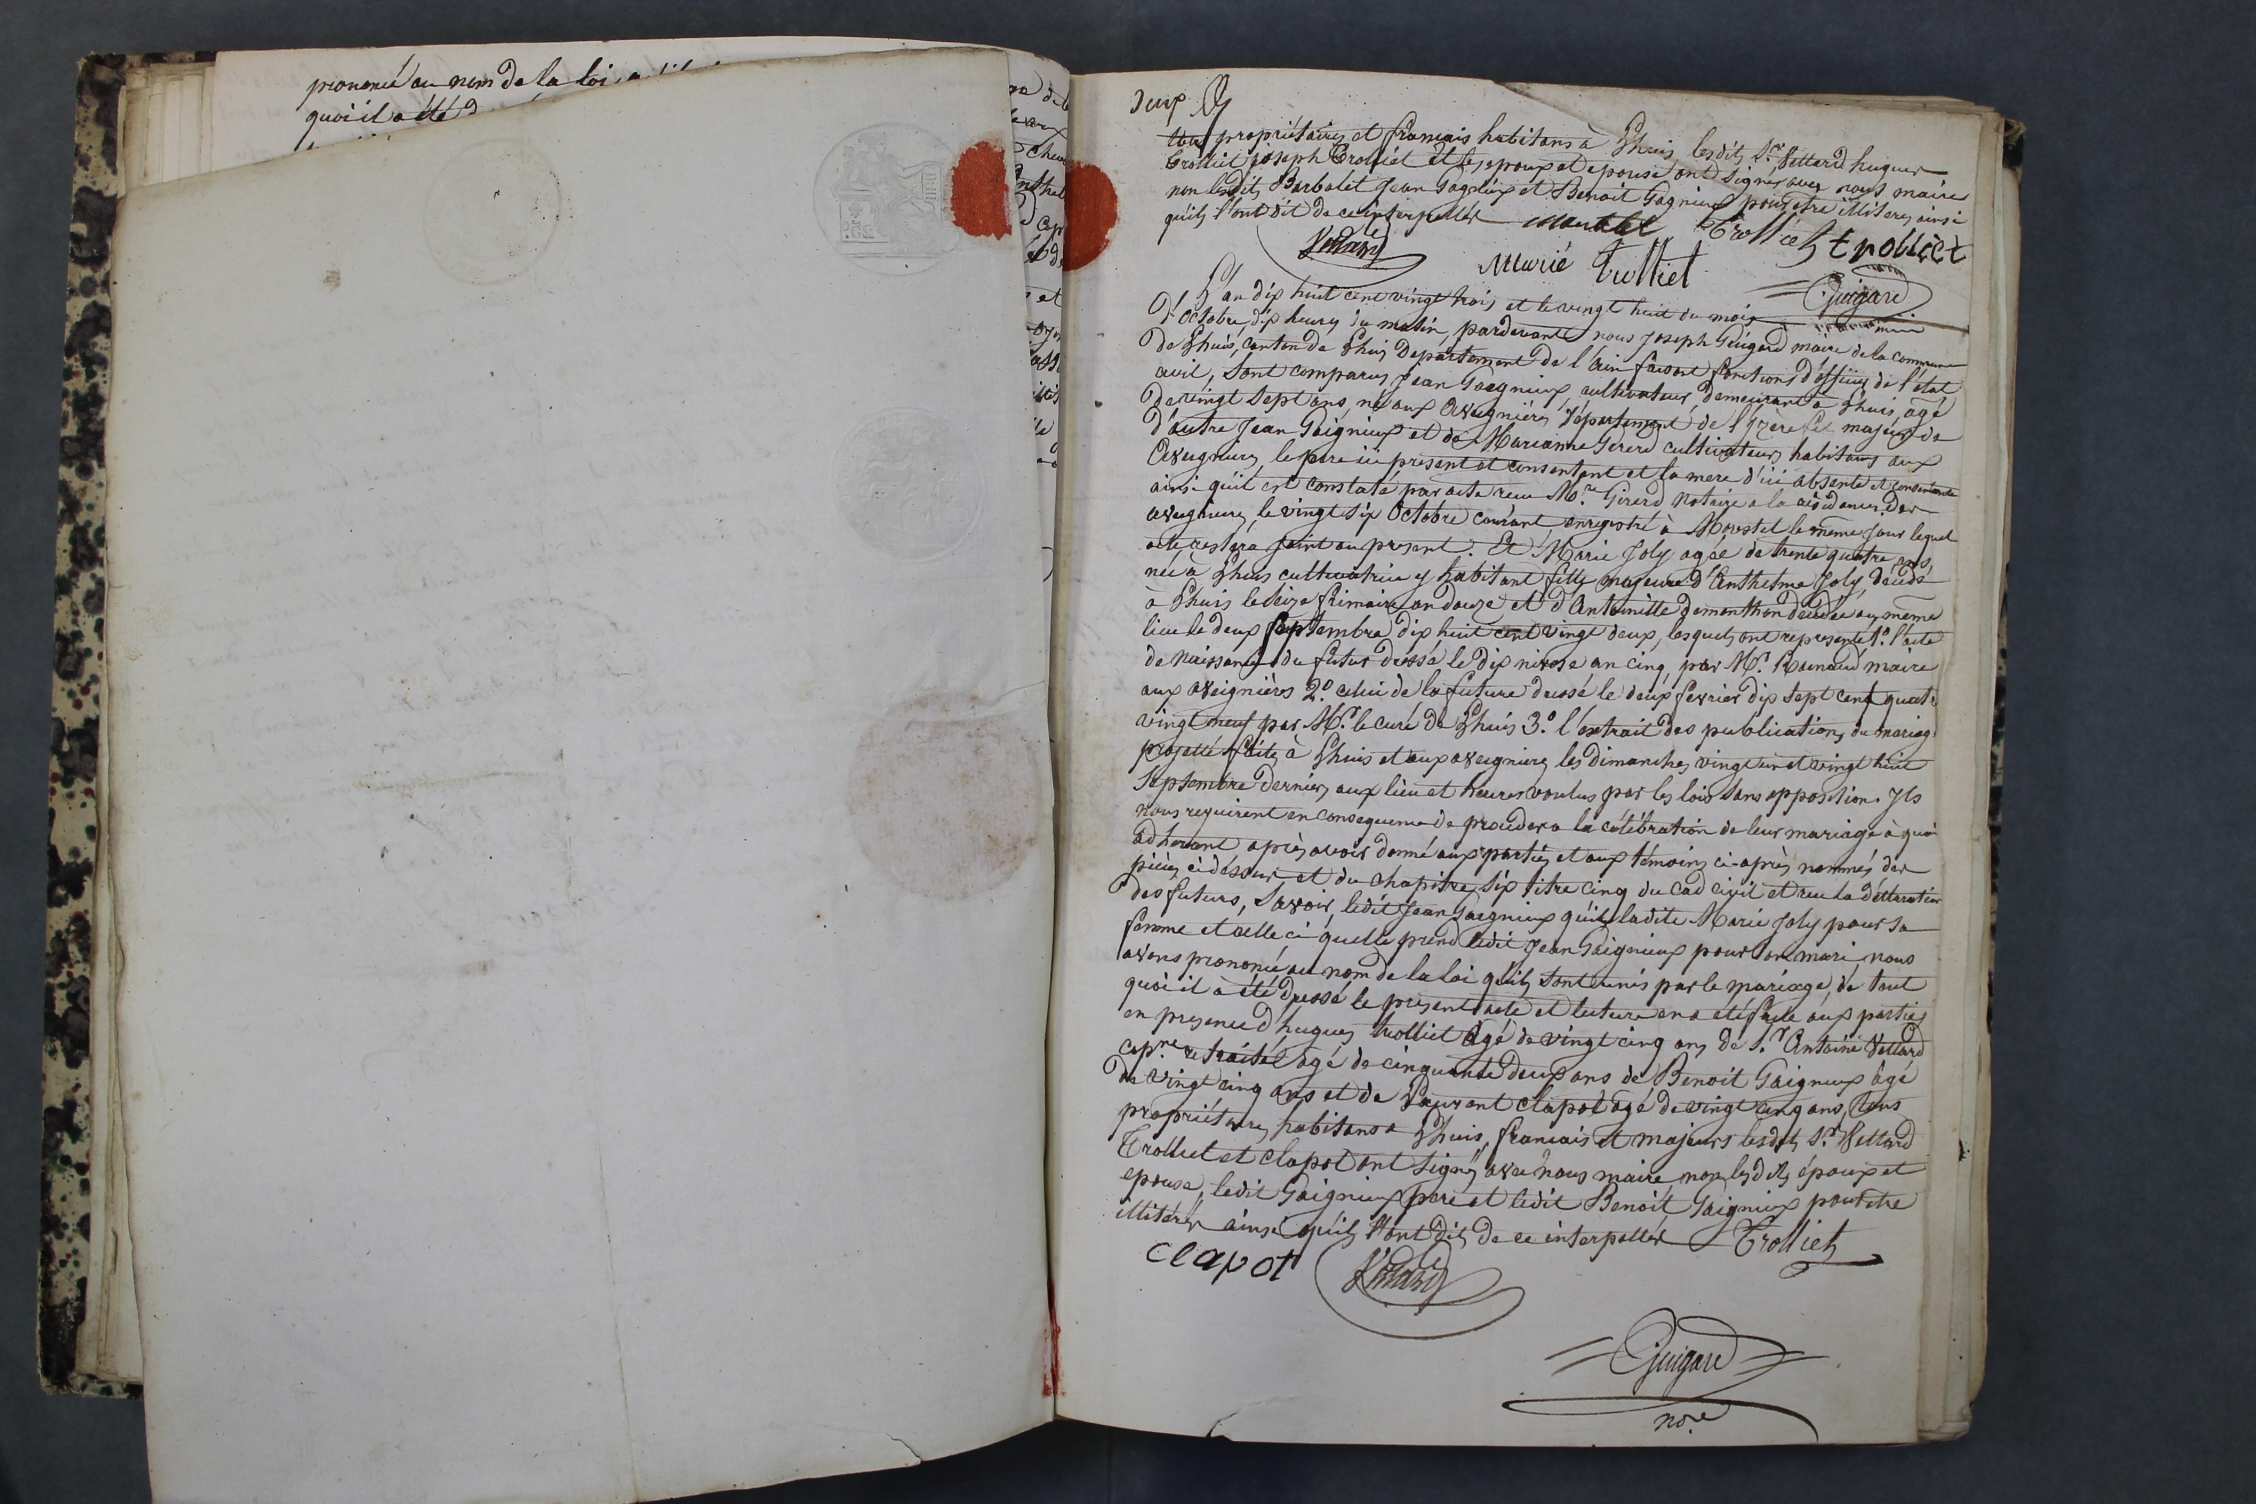 prononcé au nom de la loi
quoi il a été d
deux
tous propriétaires et francais habitans à Lhuis, lesdits Sr. Vettard hugues
trolliet joseph Trolliet et les epoux et epouse ont signés avec nous maire
non lesdits Barbolet Jean Gagnieux et Benoit Gagnieux pour etre illiteres ainsi
qu'ils l'ont dit de ce interpellés Trolliet trolliet
Vettard Marie Trolliet
Guigard
L'an dix huit cent vingt trois et le vingt huit du mois
d'octobre, dix heures du matin, pardevant nous Joseph Guigard maire de la commune
de Lhuis, canton de Lhuis Département de l'Ain faisant fonctions d'officier de l'état
civil, sont comparus Jean Gaignieux cultivateur, demeurant à Lhuis, agé
de vingt sept ans, né aux Aveignières, département de l'yzère fils majeur de
d'autre Jean Gaignieux et de Marianne Girerd cultivateurs habitans aux
Aveignieres le pere ici present et consentant et la mere d'ici absente et consentante
ainsi qu'il est constaté par acte recu Mre. Girerd notaire a la résidence des
aveignieres, le vingt six Octobre courant enregistré à Morestel le même jour lequel
acte restera joint au present. Et Marie Joly agée de trente quatre ans,
née à Lhuis cultivatrice y habitant fille majeure d'Anthelme Joly, décédé
à Lhuis le seize frimaire an douze et d'Antoinette demonthon décédée au même
lieu le deux septembre dix huit cent vingt deux, lesquels ont representé 1o. l'acte
de naissance du futur dressé le dix nivose an cinq par Mr. Renaud maire
aux aveignières 2o. celui de la future dressé le deux fevrier dix sept cent quatre
vingt neuf par Mr. le curé de Lhuis 3o. l'extrait des publications du mariage
projetté faites à Lhuis et aux aveignieres les dimanches vingt un et vingt huit
Septembre derniers aux lieu et heures voulus par les lois sans opposition. Ils
nous requierent en consequence de proceder a la célébration de leur mariage à quoi
adherant après avoir donné aux parties et aux témoins ci-après nommés des
pièces ci dessus et du chapitre six titre cinq du cod civil et recu la déclaration
des futurs, savoir, ledit Jean Gaignieux qu'il ladite Marie Joly pour sa
femme et celle ci quelle prend ledit Jean Gaignieux pour son mari nous
avons prononcé au nom de la loi qu'ils sont unis par le mariage, de tout
quoi il a été dressé le present acte et lecture en a été faite aux parties
en presence d'hugues trolliet âgé de vingt cinq ans de Sr. Antoine Vettard
capne. retraité agé de cinquante deux ans de Benoit Gaignieux âgé
de vingt cinq ans et de Laurent clapot agé de vingt cinq ans, tous
propriétaires habitans a Lhuis, francais et majeurs lesdits Sr. Vettard
Trolliet et clapot ont signés avec nous maire, non lesdits époux et
epouse, ledit Gaignieux pere et ledit Benoit Gaignieux pour etre
illitérés ainsi qu'ils l'ont dit de ce interpellés Trolliet
clapot Vettard
Guigard
nore